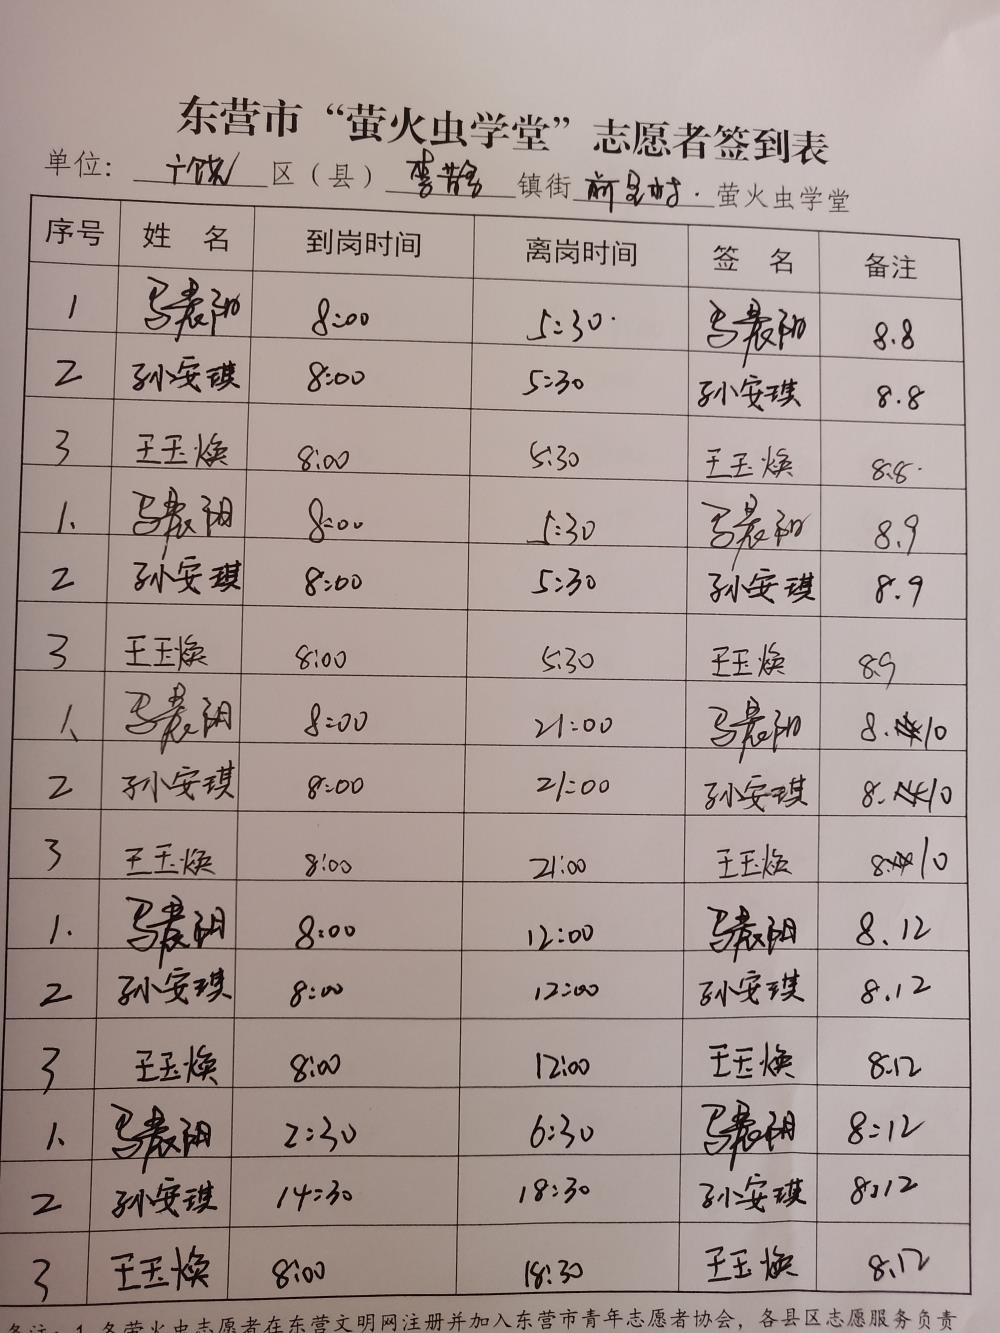 东营市“萤火虫学堂”志愿者签到表
单位：广饶 区（县） 李鹊 镇街 前 村 萤火虫学堂
序号 姓 名 到岗时间 离岗时间 签 名 备注
1 马晨阳 8:00 5:30 马晨阳 8.8
2 孙安琪 8:00 5:30 孙安琪 8.8
3 王玉焕 8:00 5:30 王玉焕 8.8
1. 马晨阳 8:00 5:30 马晨阳 8.9
2 孙安琪 8:00 5:30 孙安琪 8.9
3 王玉焕 8:00 5:30 王玉焕 8.9
1. 马晨阳 8:00 21:00 马晨阳 8.10
2 孙安琪 8:00 21:00 孙安琪 8.10
3 王玉焕 8:00 21:00 王玉焕 8.10
1. 马晨阳 8:00 12:00 马晨阳 8.12
2 孙安琪 8:00 12:00 孙安琪 8.12
3 王玉焕 8:00 12:00 王玉焕 8.12
1. 马晨阳 2:30 6:30 马晨阳 8:12
2 孙安琪 14:30 18:30 孙安琪 8.12
3 王玉焕 8:00 18:30 王玉焕 8.12
备注：1.各萤火虫志愿者在东营文明网注册并加入东营市青年志愿者协会，各县区志愿服务负责